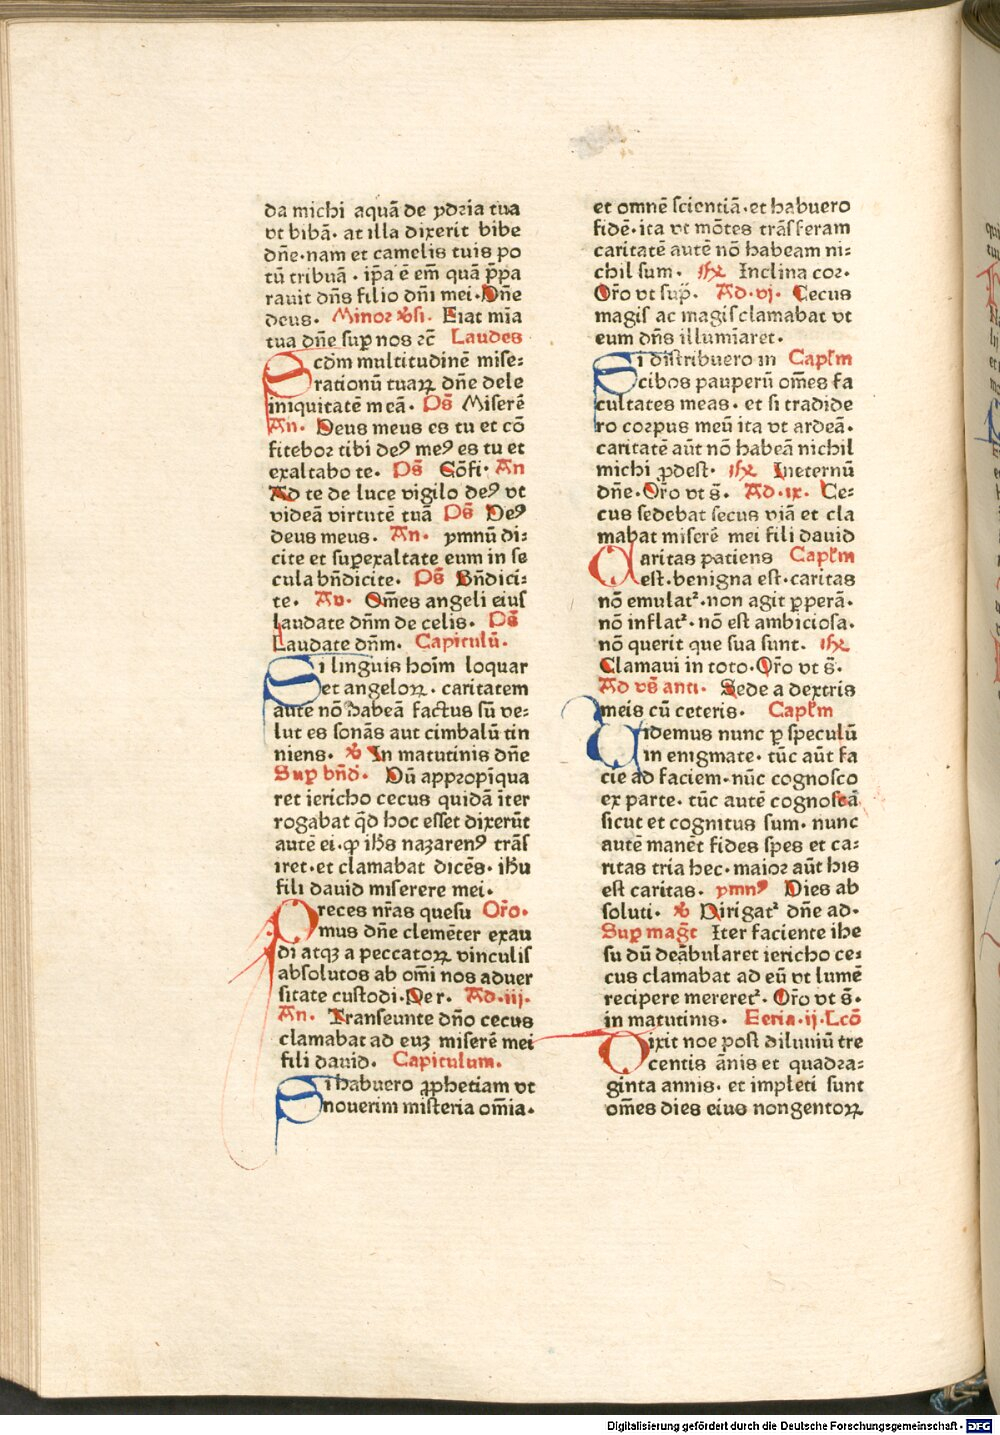 da michi aquā de ydria tua
vt bibā· at illa dixerit bibe
dn̄e·nam et camelis tuis po
tū tribuā · ip̄a ē em̄ quā p̄pa
rauit dn̄s filio dn̄i mei·Dn̄e
deus· Minor v̄si· Fiat mīa
tua dn̄e suꝑ nos ⁊c̄ Laudes
Scd̄m multitudinē mise⸗
rationū tuaꝝ dn̄e dele
iniquitatē meā· Ps̄ Miserē
An· Deus meus es tu et cō
fitebor tibi deꝰ meꝰ es tu et
exaltabo te· Ps̄ Cōfi· An
Ad te de luce vigilo deꝰ vt
videā virtutē tuā Ps̄ Deꝰ
deus meus· An· ymnū di⸗
cite et suꝑexaltate eum in se
cula bn̄dicite· Ps̄ Bn̄dici⸗
te· An· Om̄es angeli eius
laudate dn̄m de celis· Ps̄
Laudate dn̄m· Capitulū·
Si linguis hoīm loquar
et angeloꝝ· caritatem
autē nō habeā factus sū ve⸗
lut es sonās aut cimbalū tin
niens· ℣ In matutinis dn̄e
Suꝑ bn̄d· Dū appropīqua
ret iericho cecus quidā īter
rogabat qd̄ hoc esset dixerūt
autē ei·ꝙ ih̄s nazarenꝰ trās
iret·et clamabat dicēs· ih̄u
fili dauid miserere mei·
Preces nr̄as quesu Or̄o·
mus dn̄e clemēter exau
di atqꝫ a peccatoꝝ vinculis
absolutos ab om̄i nos aduer
sitate custodi·Per· Ad·iij·
An· Transeunte dn̄o cecus
clamabat ad euꝫ miserē mei
fili dauid· Capitulum·
Si habuero ꝓphetiam vt
nouerim misteria om̄ia·
et omnē scientiā·et habuero
fidē·ita vt mōtes trāsferam
caritatē autē nō habeam ni⸗
chil sum· ℟ Inclina cor·
Or̄o vt sup̄· Ad·vj· Cecus
magis ac magis clamabat vt
eum dn̄s illumīaret·
Si distribuero in Capl̄m
cibos pauperū om̄es fa
cultates meas· et si tradide
ro corpus meū ita vt ardeā·
caritatē aūt nō habeā nichil
michi ꝓdest· ℟ Ineternū
dn̄e·Or̄o vt s̄· Ad·ix· Ce⸗
cus sedebat secus viā et cla
mabat miserē mei fili dauid
Caritas patiens Capl̄m
est·benigna est·caritas
nō emulat᷑·non agit ꝑperā·
nō inflat᷑·nō est ambiciosa·
nō querit que sua sunt· ℟
Clamaui in toto·Or̄o vt s̄·
Ad vs̄ anti· Sede a dextris
meis cū ceteris· Capl̄m
Uidemus nunc ꝑ speculū
in enigmate· tūc aūt fa
cie ad faciem·nūc cognosco
ex parte· tūc autē cognoscā
sicut et cognitus sum· nunc
autē manēt fides spes et ca⸗
ritas tria hec·maior aūt his
est caritas· ymnꝰ Dies ab
soluti· ℣ Dirigat᷑ dn̄e ad·
Suꝑ magt̄ Iter faciente ihe
su dū deābularet iericho ce⸗
cus clamabat ad eū vt lumē
recipere mereret᷑· Or̄o vt s̄·
in matutinis· Feria·ij·Lcō
Dixit noe post diluuiū tre
centis ānis et quadra⸗
ginta annis· et impleti sunt
om̄es dies eius nongentoꝝ
Digitalisierung gefördert durch die Deutsche Forschungsgemeinschaft - DFG